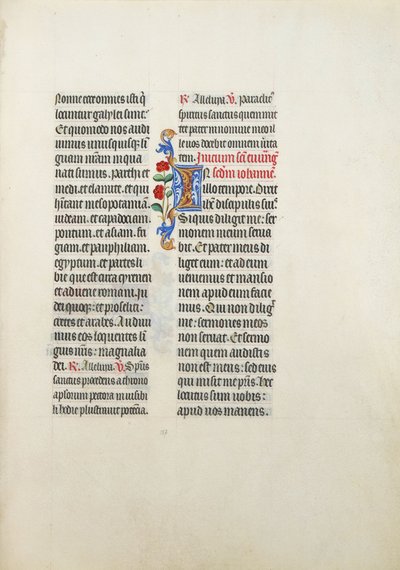 Nonne ecce omnes isti q̄
locuntur galylei sunt:
Et quomodo nos audi
uimus unusquisq; lī
guam nr̄am in qua
nati sumus. parthi et
medi. et elamite. et qui
hītant mesopotamiā
iudeam. et capadociam.
pontum. et asiam. fri
giam. et pamphiliam.
egyptum. et partes li
bie que est circa cyrenen
et aduene romani. iu
dei quoq;. et proseliti:
cretes et arabes. Audiui
mus eos loquentes li
guis nr̄is: magnalia
dei. R. Alleluya. V. Sp̄ūs
sanctus procedens a throno
apl̄orum pectora inuisibi
li hodie
R. Alleluya. V. Paraclit᷒
spiritus sanctus quem mit
tet pater in nomine meo il
le uos docebit omnem uerita
tem. Inicium sc̄i euuanḡ
scd̄m iohanne᷒.
IN
illo tempore. Dixit
ih̄s discipulis suis.
Si quis diligit me: ser
monem meum serua
bit. Et pater meus di
liget eum: et ad eum
ueniemus et mansio
nem apud eum facie
mus. Qui non diligit
me: sermones meos
non seruat. Et sermo
nem quem audistis
non est meus: sed eius
qui misit me pr̄is. Hec
locutus sum uobis:
apud uos manens.